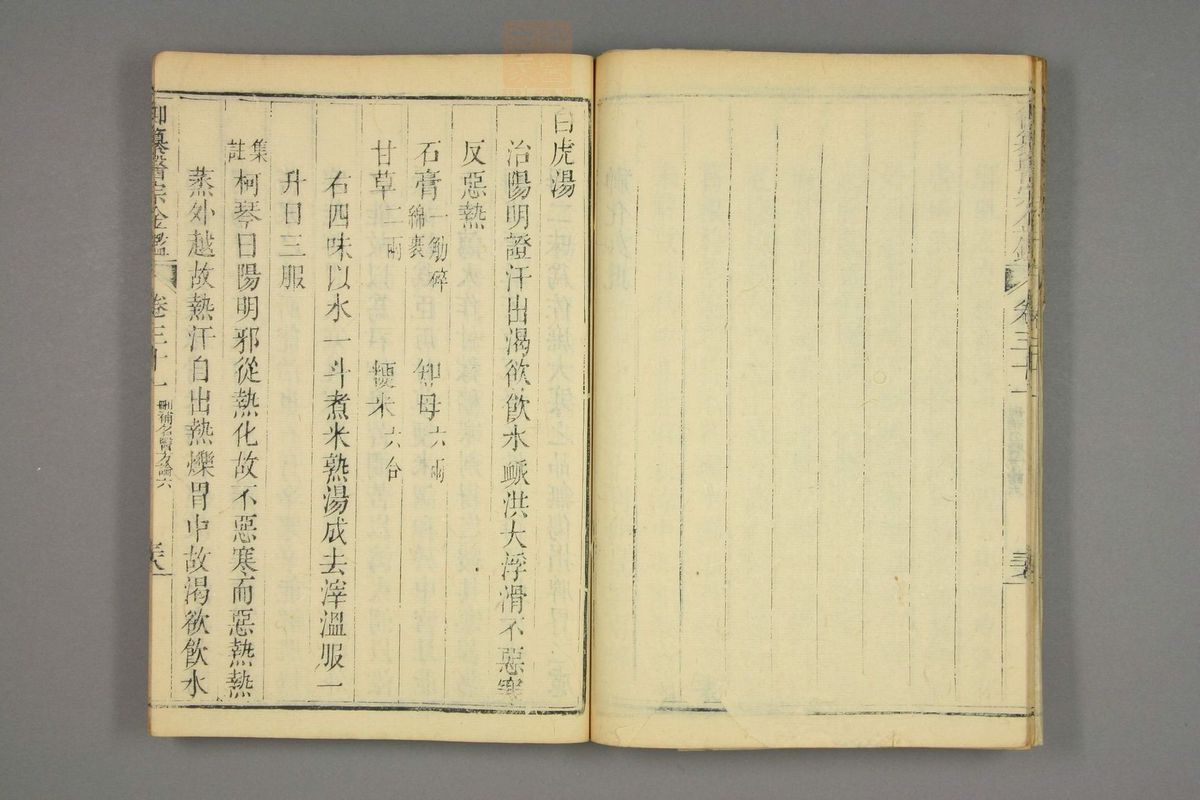 白虎湯
治陽明證汗出渴欲飮水脈洪大浮滑不惡寒
反惡熱
石膏一觔碎綿裹 知母六兩
甘草二兩 粳米六合
右四味以水一斗煮米熟湯成去滓溫服一
升日三服
集註柯琴曰陽明邪從熱化故不惡寒而惡熱熱
蒸外越故熱汗自出熱爍胃中故渴欲飮水
御纂醫宗金鑑 卷三十一 刪補名醫方論六